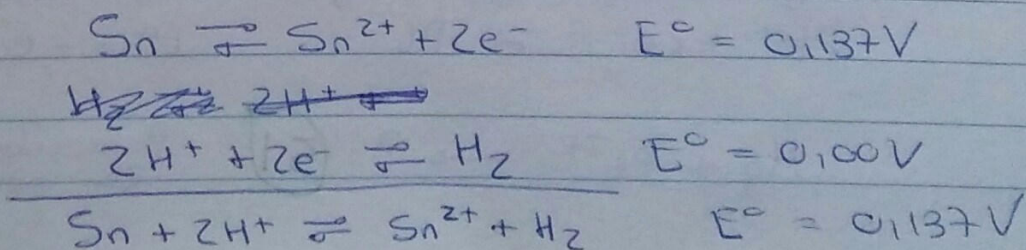 Sn ⇌ Sn²⁺ + 2e⁻ E° = 0,137V
2H⁺ + 2e⁻ ⇌ H₂ E° = 0,00V
Sn + 2H⁺ ⇌ Sn²⁺ + H₂ E° = 0,137V